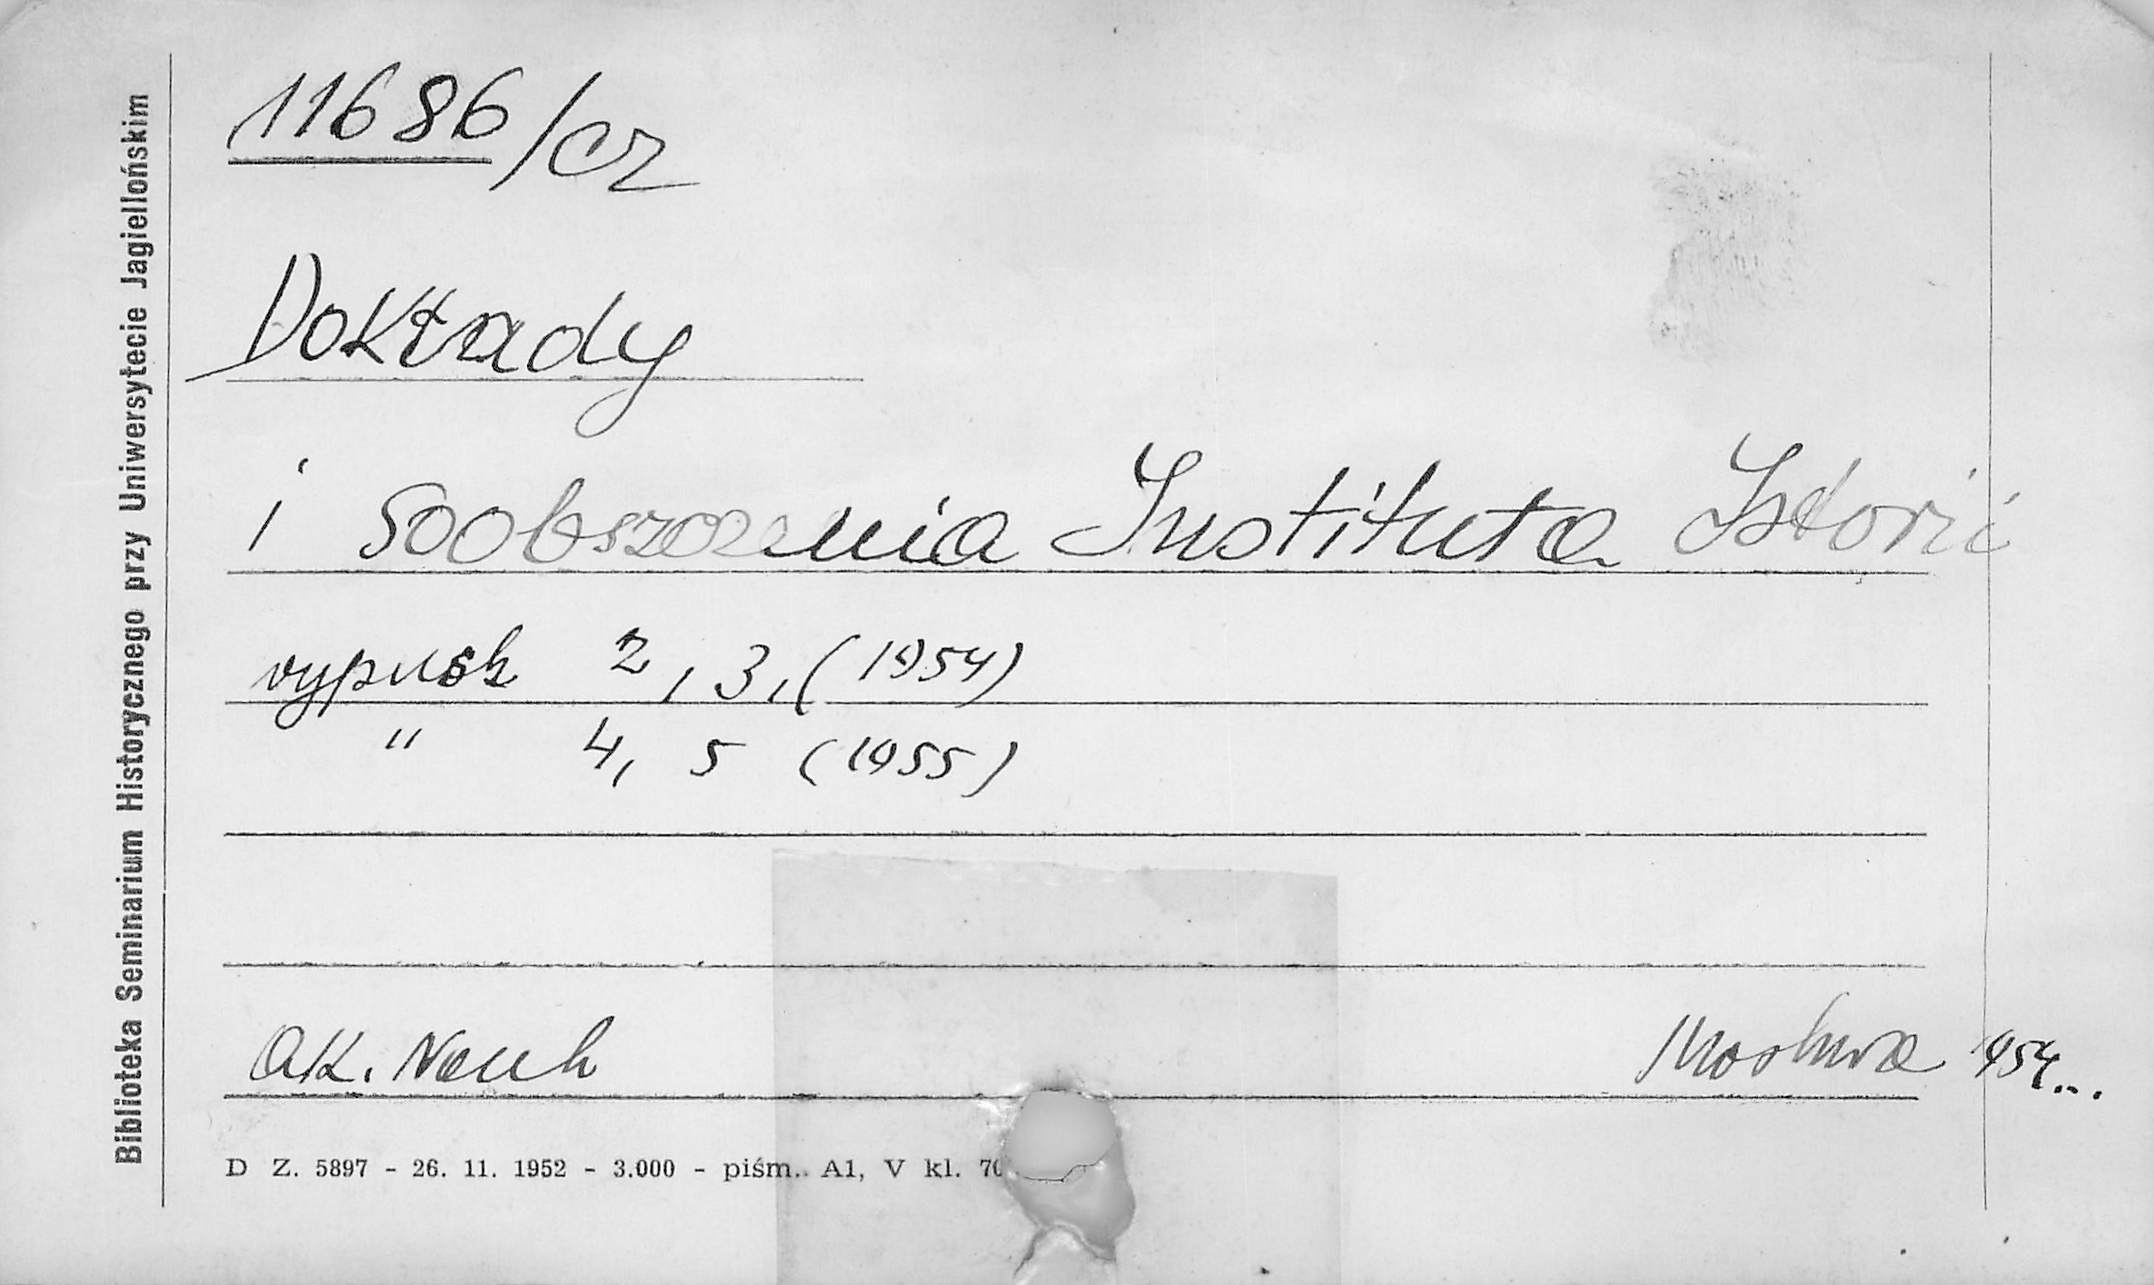 11686/cz
Dokłady
i soobszczenia Instituta Istorii
vypusk 2, 3, (1954)
" 4, 5 (1955)
Ak. Nauk
Moskva 1954...
D Z. 5897 - 26. 11. 1952 - 3.000 - piśm. A1, V kl. 70
Biblioteka Seminarium Historycznego przy Uniwersytecie Jagiellońskim